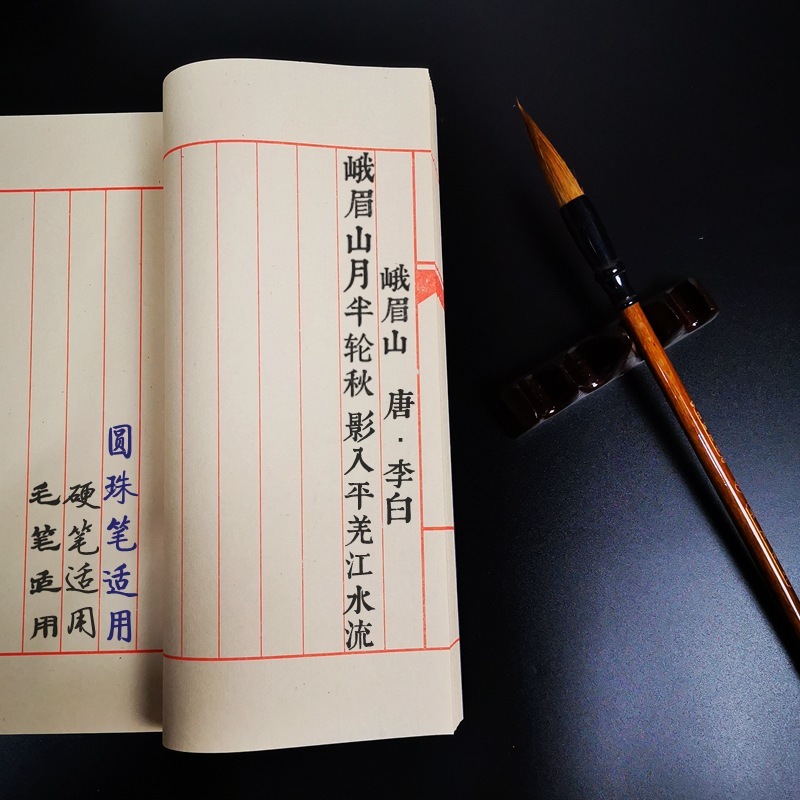 峨眉山 唐·李白
峨眉山月半轮秋 影入平羌江水流
圆珠笔适用
硬笔适用
毛笔适用